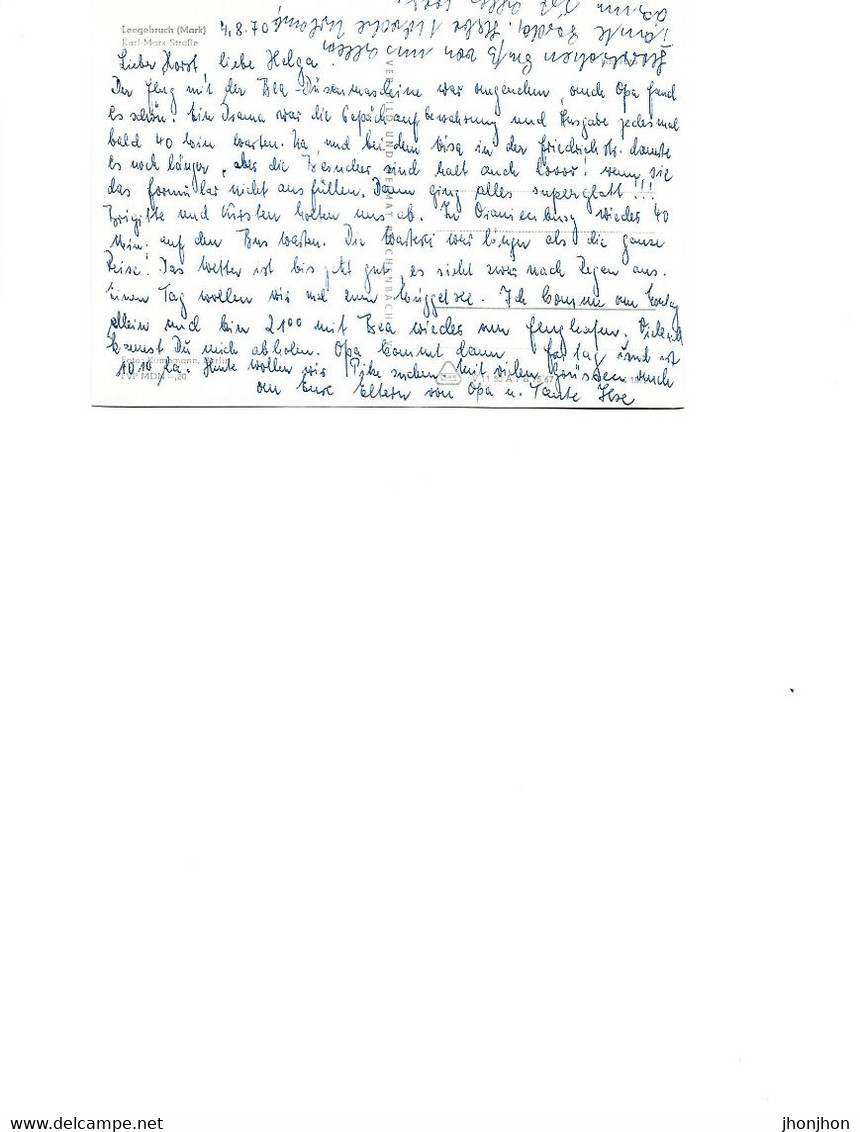 Leegebruch (Mark)
Karl-Marx-Straße
4.8.70
Lieber Horst, liebe Helga!
Der Flug mit der Bea-Düsenmaschine war angenehm, auch Opa fand
es schön! Ein Drama war die Gepäckaufbewahrung und Ausgabe jedesmal
bald 40 Min warten. Na, und bei dem Visa in der Friedrichstr. dauerte
es noch länger, aber die Besucher sind halt auch doof! wenn sie
das Formular nicht ausfüllen. Dann ging alles superglatt!!!
Brigitte und Kirsten holten uns ab. In Oranienburg wieder 40
Min. auf den Bus warten. Die Warterei war länger als die ganze
Reise! Das Wetter ist bis jetzt gut, es sieht zwar nach Regen aus.
Einen Tag wollen wir mal zum Müggelsee. Ich komme am
allein und bin 21 00 mit Bea wieder am Flughafen. Vielleicht
kannst Du mich abholen. Opa kommt dann und ist
10 10 da. Heute wollen wir Pilze suchen. Mit vielen Grüssen auch
an Eure Eltern von Opa u. Tante Ilse
Herzlichen Gruß von uns allen
VERLAG BILD UND HEIMAT REICHENBACH
Foto: Kambmann, Berlin
EVP MDN -,20
jhonjhon
delcampe.net